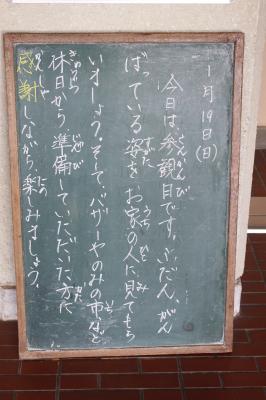 十一月19日(日)
今日は、参観日です。ふだん、がん
ばっている姿を、お家の人に見てもら
いましょう。そして、バザーやのみの市など
休日から準備していただいた方に
感謝しながら、楽しみましょう。